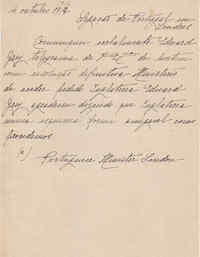 outubro 191
Legação de Portugal em
Londres
Communiquei verbalmente Edward
Grey telegrama de V. Exª de hontem
com resolução definitiva Ministerio
de aceder pedido Inglaterra Edward
Grey agradeceu dizendo que Inglaterra
nunca esquece forma amigavel como
procedemos
(a)
Portuguese Minister London